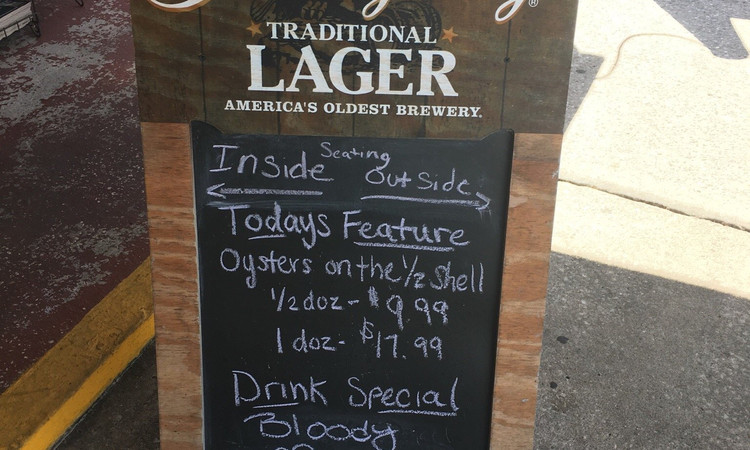 TRADITIONAL
LAGER
AMERICA'S OLDEST BREWERY.
Seating
Inside Outside
Todays Feature
Oysters on the 1/2 Shell
1/2 doz - $9.99
1 doz - $17.99
Drink Special
Bloody